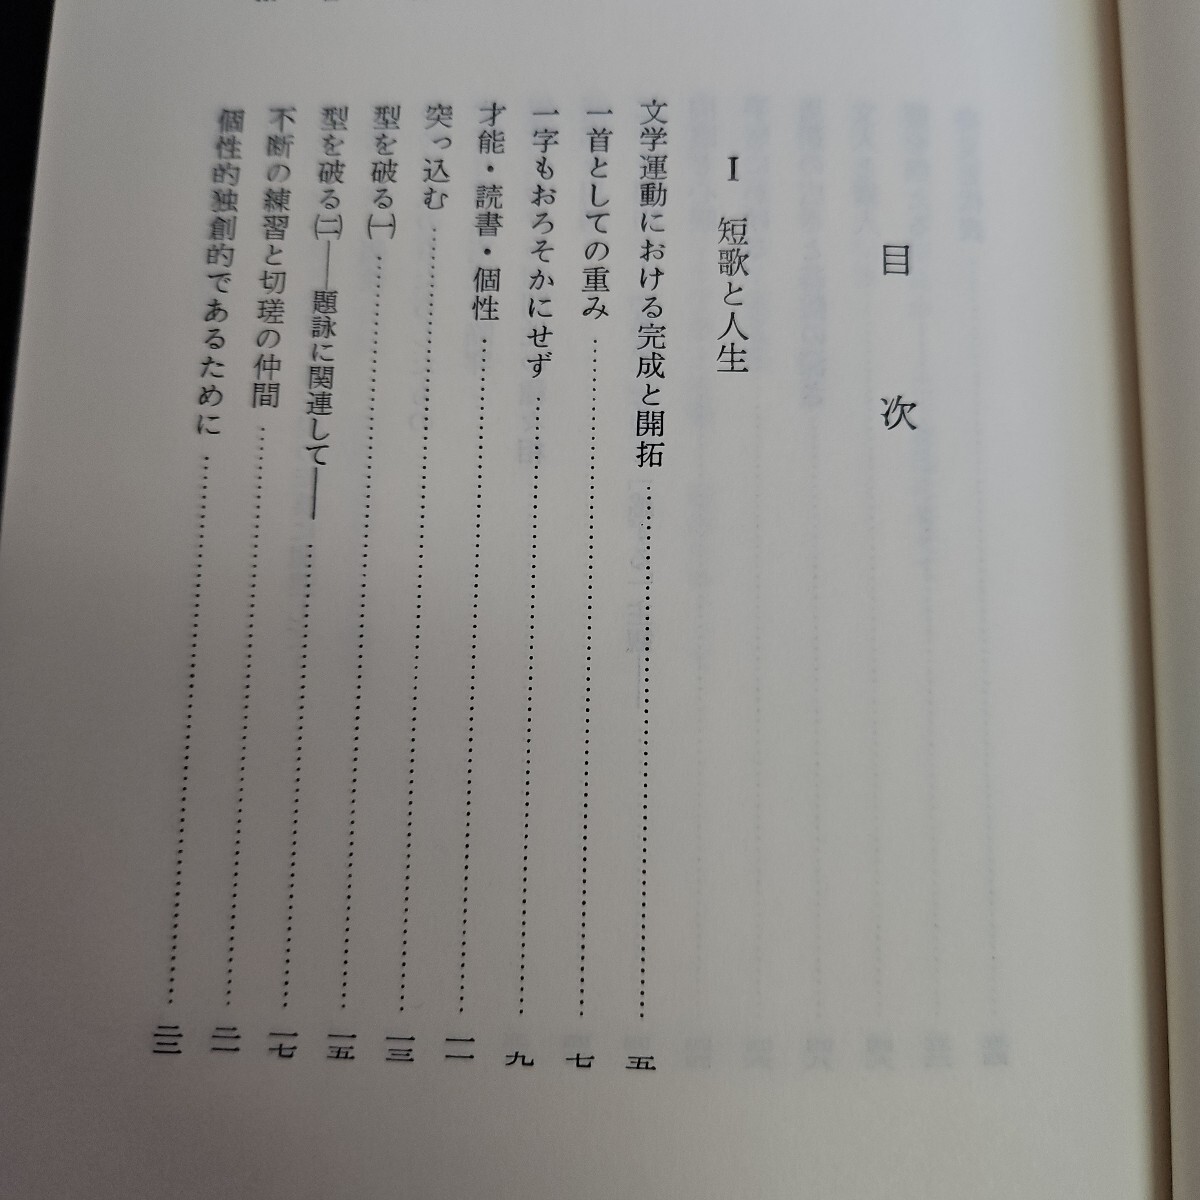 目次
Ⅰ 短歌と人生
文学運動における完成と開拓……五
一首としての重み……七
一字もおろそかにせず……九
才能・読書・個性……一一
突っ込む……一三
型を破る㈠……一五
型を破る㈡――題詠に関連して――……一七
不断の練習と切磋の仲間……二一
個性的独創的であるために……二三